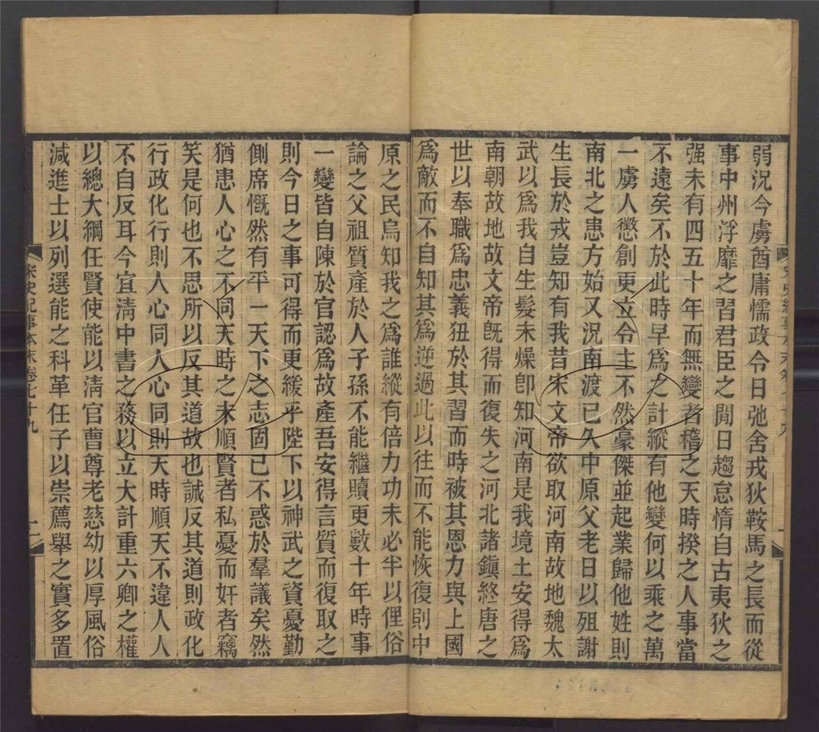 弱況今虜酋庸懦政令日弛舍戎狄鞍馬之長而從
事中州浮靡之習君臣之閒日趨怠惰自古夷狄之
强未有四五十年而無變者稽之天時揆之人事當
不遠矣不於此時早爲之計縱有他變何以乘之萬
一虜人懲創更立令主不然豪傑並起業歸他姓則
南北之患方始又況南渡已久中原父老日以殂謝
生長於戎豈知有我昔宋文帝欲取河南故地魏太
武以爲我自生髮未燥卽知河南是我境土安得爲
南朝故地故文帝旣得而復失之河北諸鎭終唐之
世以奉職爲忠義狃於其習而時被其恩力與上國
爲敵而不自知其爲逆過此以往而不能恢復則中
原之民烏知我之爲誰縱有倍力功未必半以俚俗
論之父祖質產於人子孫不能繼贖更數十年時事
一變皆自陳於官認爲故產吾安得言質而復取之
則今日之事可得而更緩乎陛下以神武之資憂勤
側席慨然有平一天下之志固已不惑於羣議矣然
猶患人心之不同天時之未順賢者私憂而奸者竊
笑是何也不思所以反其道故也誠反其道則政化
行政化行則人心同人心同則天時順天不違人人
不自反耳今宜淸中書之務以立大計重六卿之權
以總大綱任賢使能以淸官曹尊老慈幼以厚風俗
減進士以列選能之科革任子以崇薦舉之實多置
宋史紀事本末卷七十九